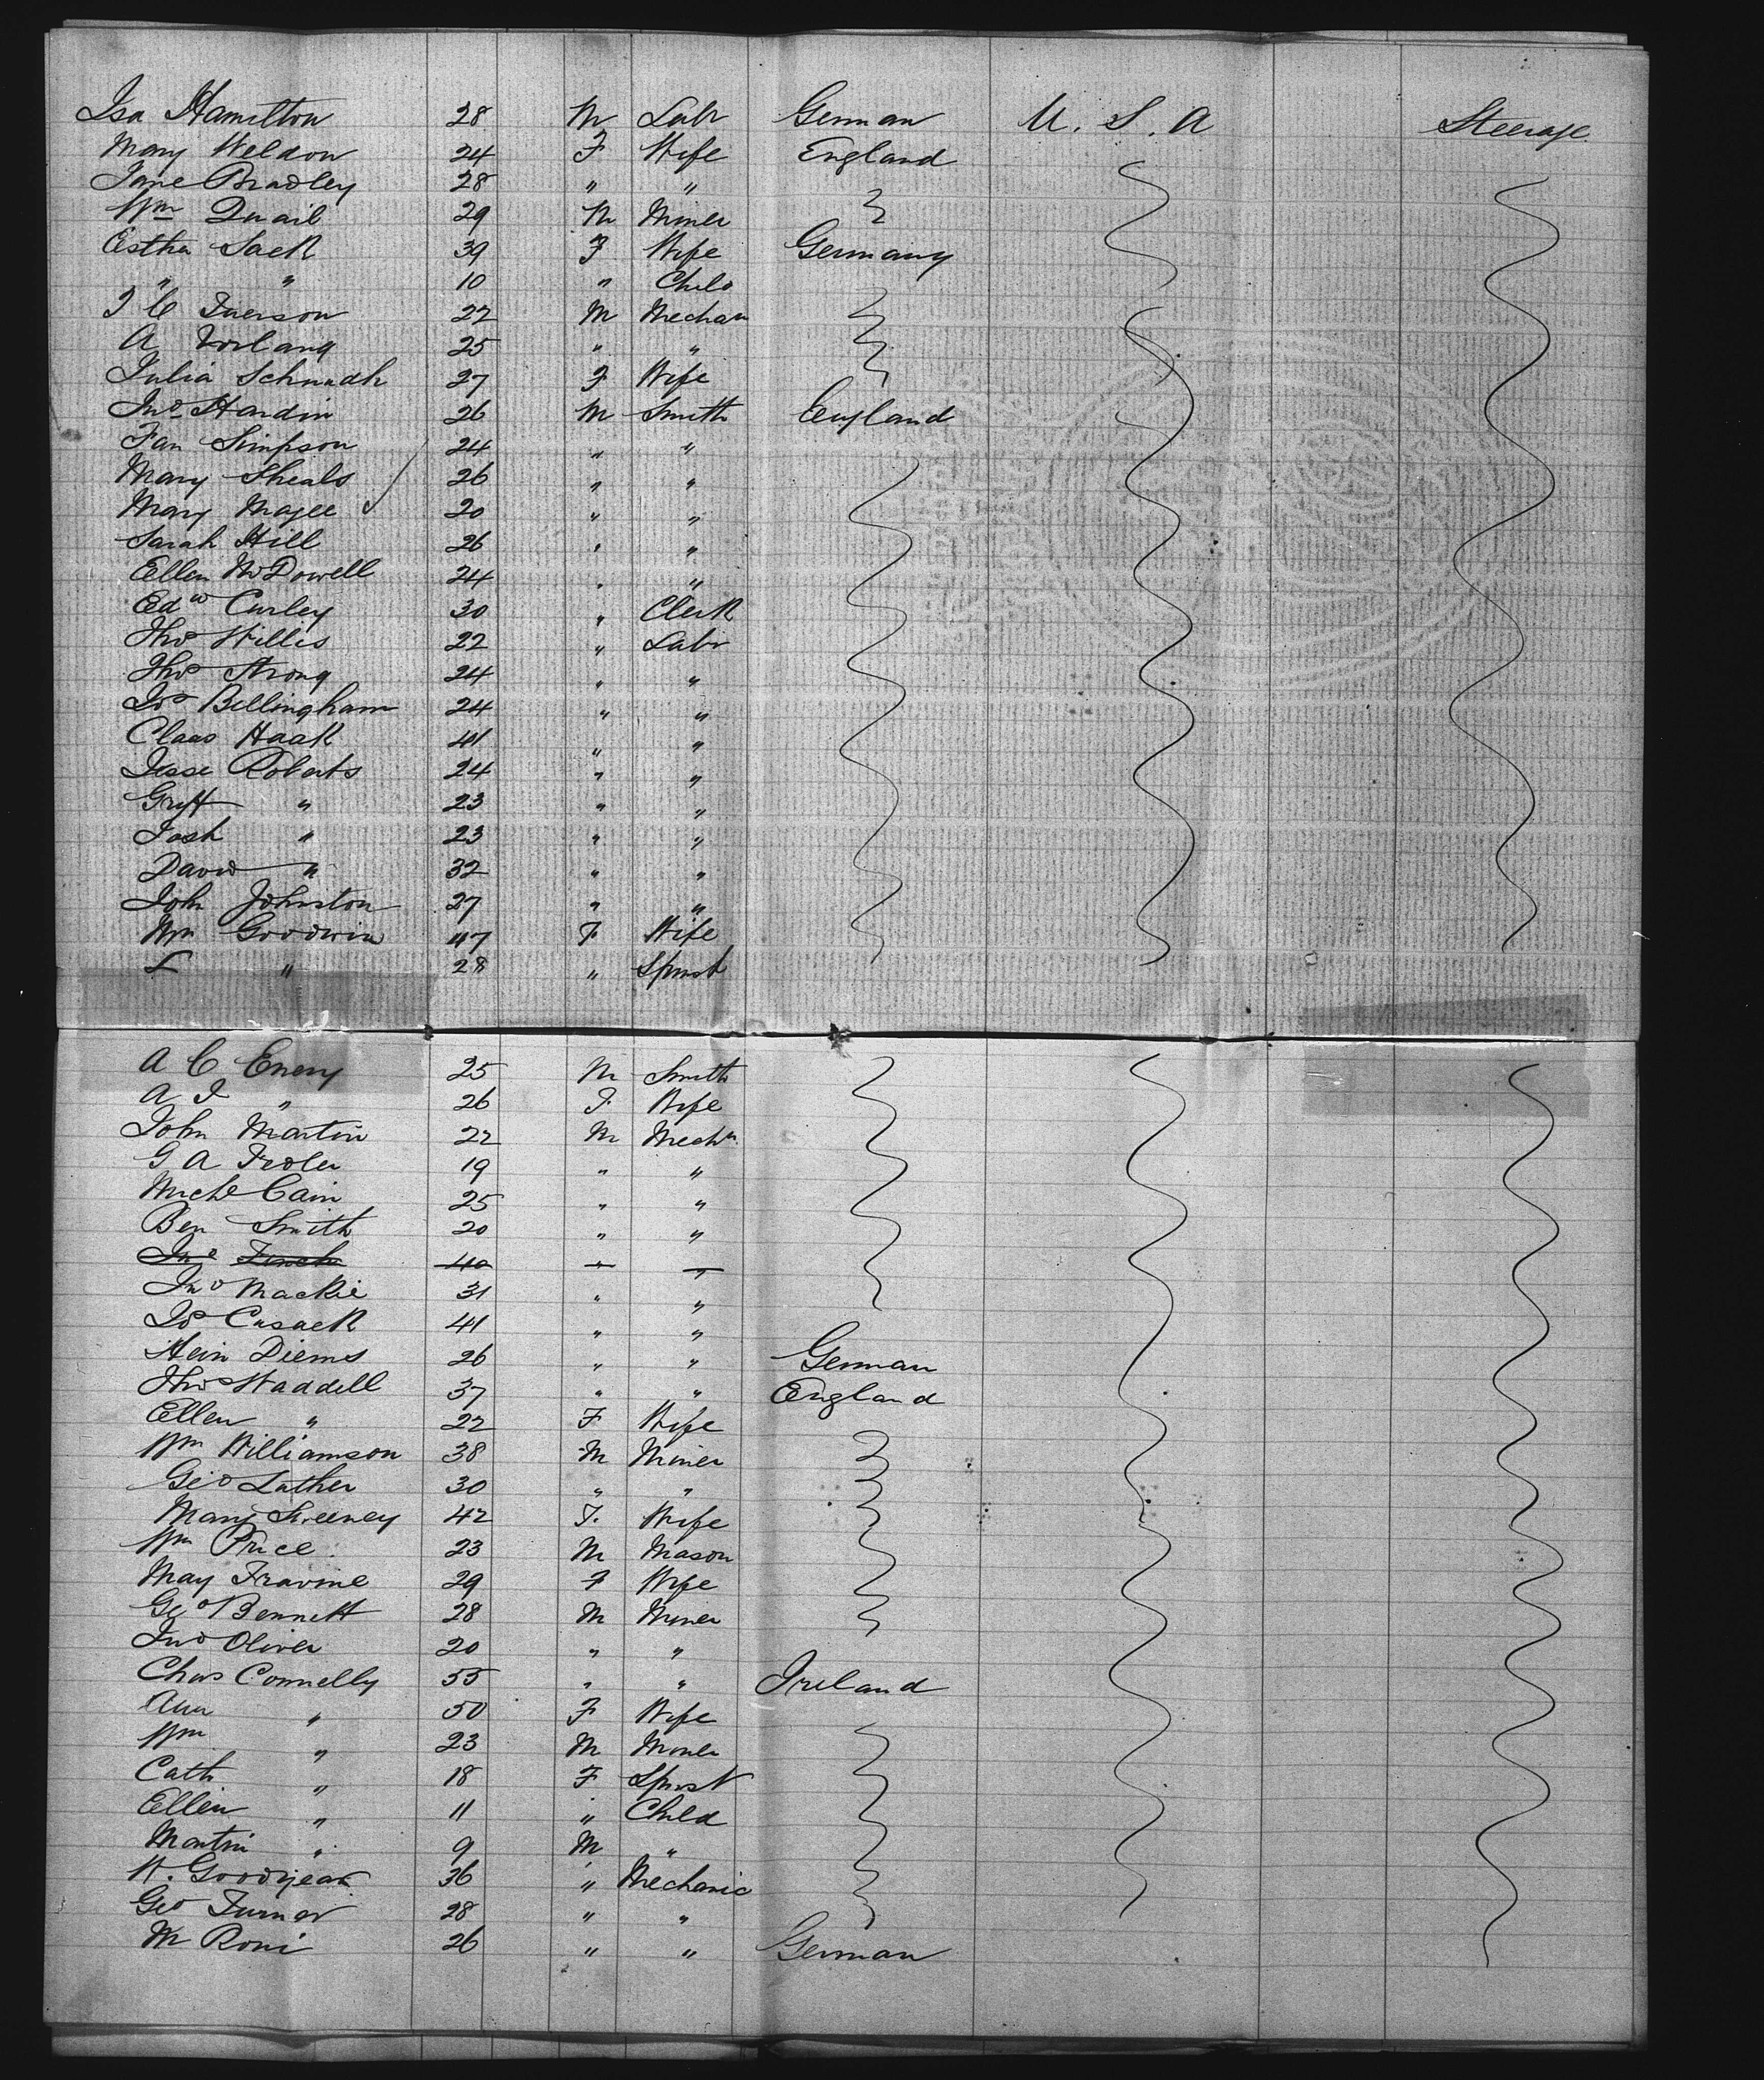 Isa Hamilton 28 M Labr German U. S. A Steerage
Mary Weldon 24 F Wife England
Jane Bradley 28 " "
Wm Quail 29 M Miner
Esther Sack 39 F Wife Germany
" " 10 " Child
J C Iverson 22 M Mechan
A 25 " "
Julia 27 F Wife
Jno Hardin 26 M Smith England
Fan Simpson 24 " "
Mary Sheals 26 " "
Mary Magee 20 " "
Sarah Hill 26 " "
Ellen McDowell 24 " "
Edwd Curley 30 " Clerk
Thos Willis 22 " Labr
Thos Strong 24 " "
Jos Bellingham 24 " "
Claas Haak 41 " "
Jesse Roberts 24 " "
Griff " 23 " "
Josh " 23 " "
David " 32 " "
John Johnston 27 " "
Wm Goodwin 47 F Wife
L " 28 " Spinst
A C Enery 25 M Smith
A J " 26 F Wife
John Martin 22 M Mechn
G A 19 " "
Michl Cain 25 " "
Ben Smith 20 " "
Jno Finch 40 " "
Jno Mackie 31 " "
Jos Cusack 41 " "
Hein Diems 26 " " German
Thos Waddell 37 " " England
Ellen " 22 F Wife
Wm Williamson 38 M Miner
Geo Luther 30 " "
Mary Sweeney 42 F. Wife
Wm Price 23 M Mason
May 29 F Wife
Geo Bennett 28 M Miner
Jno Oliver 20 " "
Chas Connelly 55 " " Ireland
Ann " 50 F Wife
Wm " 23 M Miner
Cath " 18 F Spinst
Ellen " 11 " Child
Martin " 9 M "
W. Goodyear 36 " Mechanic
Geo Turner 28 " "
M Roni 26 " " German